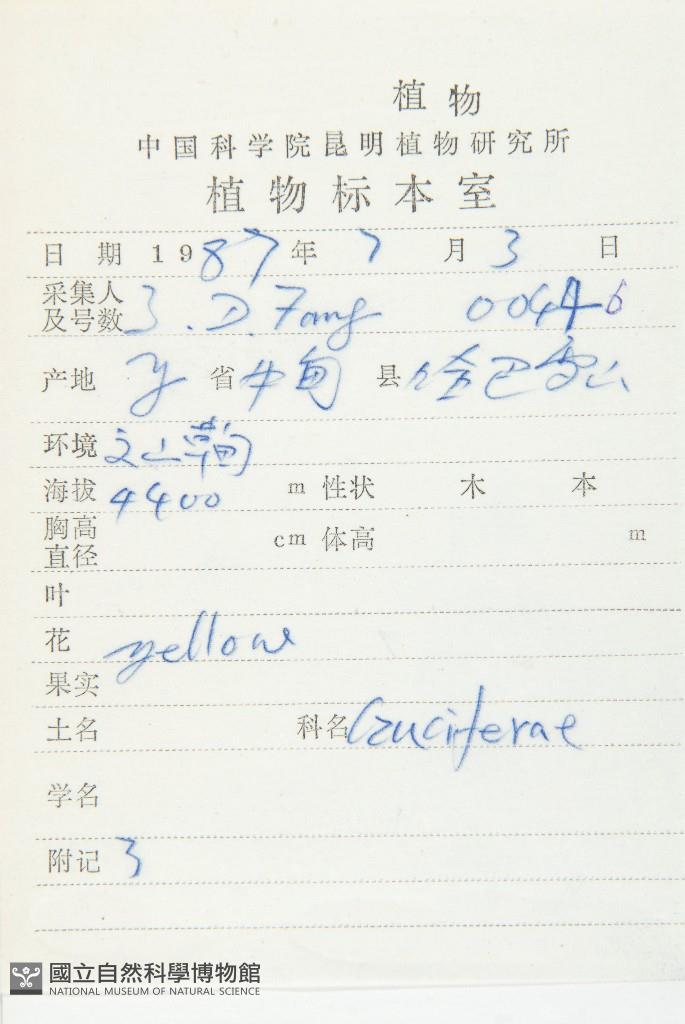 植物
中国科学院昆明植物研究所
植物标本室
日期 1987年 7月 3日
采集人及号数 3.D.Fang 00446
产地 y 省 中甸 县 哈巴雪山
环境 山草甸
海拔 4400 m 性状 木 本
胸高直径 cm 体高 m
叶
花 yellow
果实
土名 科名 Cruciferae
学名
附记 3
國立自然科學博物館
NATIONAL MUSEUM OF NATURAL SCIENCE